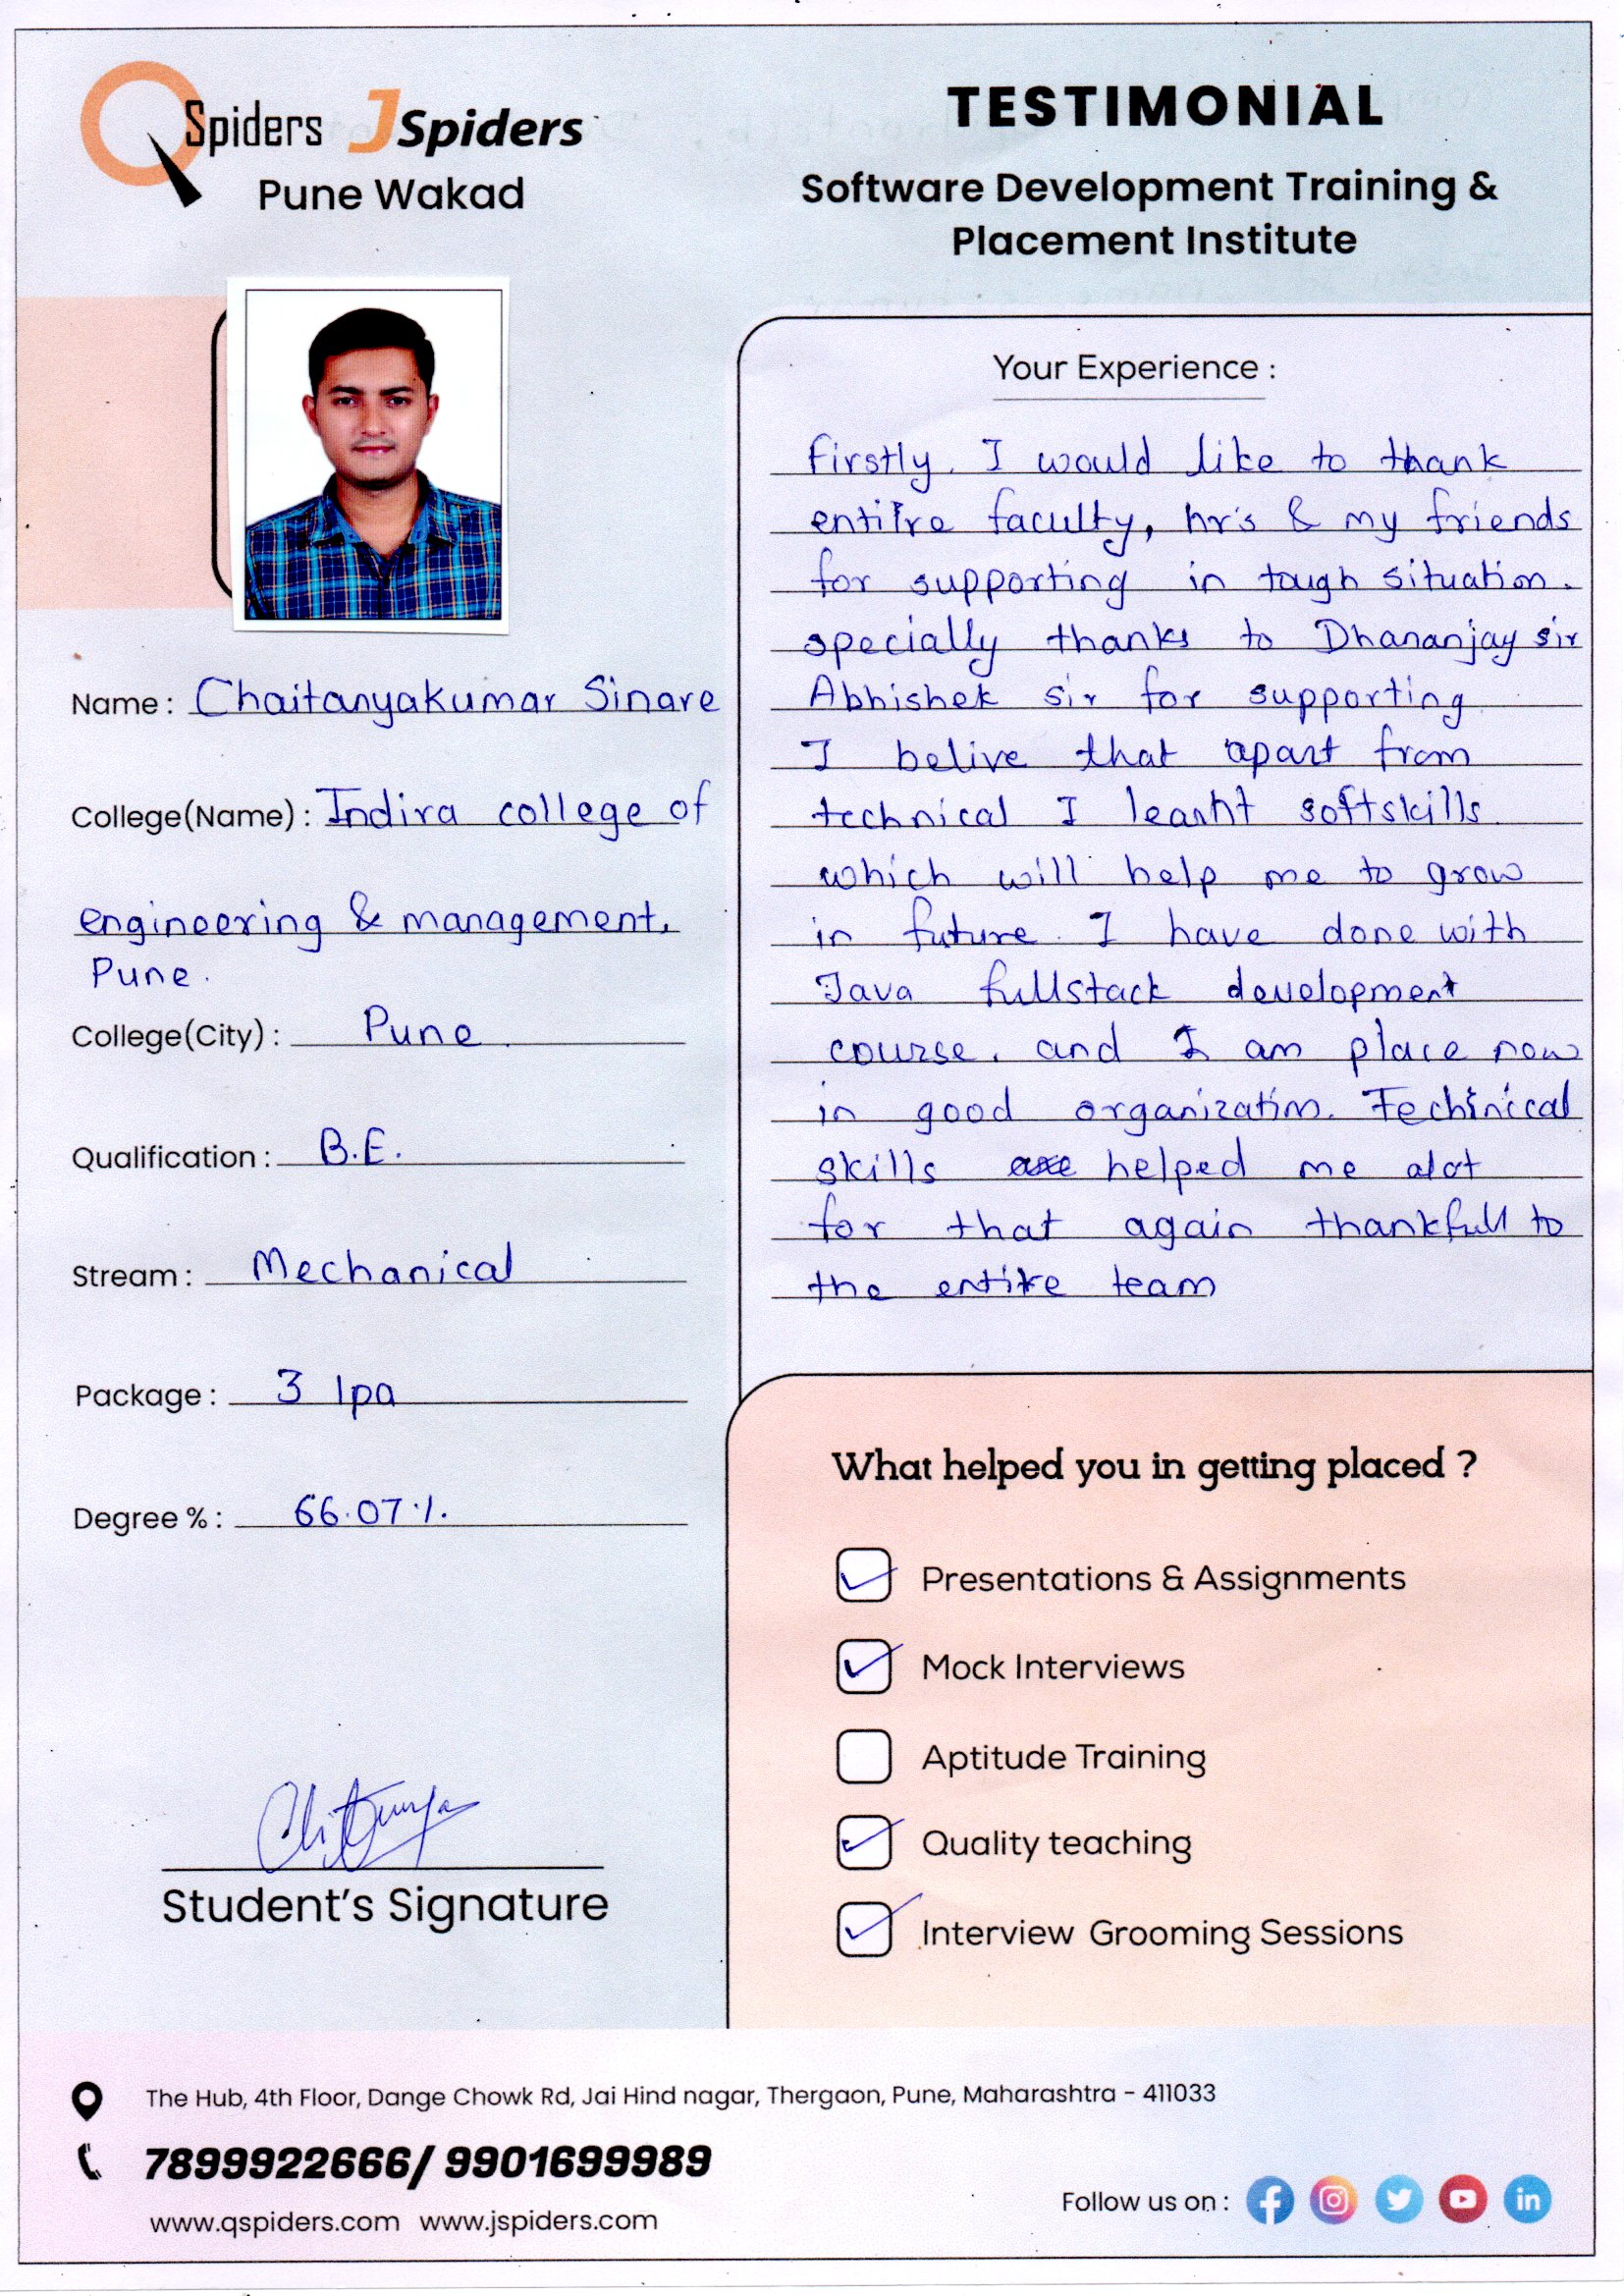 QSpiders JSpiders
Pune Wakad
TESTIMONIAL
Software Development Training &
Placement Institute
Name : Chaitanyakumar Sinare
College(Name) : Indira college of
engineering & management,
Pune.
College(City) : Pune.
Qualification : B.E.
Stream : Mechanical
Package : 3 lpa
Degree % : 66.07 %.
Student's Signature
Your Experience :
Firstly, I would like to thank
entilre faculty, hr's & my friends
for supporting in tough situation.
specially thanks to Dhananjay sir
Abhishek sir for supporting
I belive that apart from
technical I learht softskills
which will help me to grow
in future. I have done with
Java fullstack development
course. and I am place now
in good organization. Techinccal
skills are helped me alot
for that again thankfull to
the entire team
What helped you in getting placed ?
Presentations & Assignments
Mock Interviews
Aptitude Training
Quality teaching
Interview Grooming Sessions
The Hub, 4th Floor, Dange Chowk Rd, Jai Hind nagar, Thergaon, Pune, Maharashtra - 411033
7899922666/ 9901699989
www.qspiders.com www.jspiders.com
Follow us on :